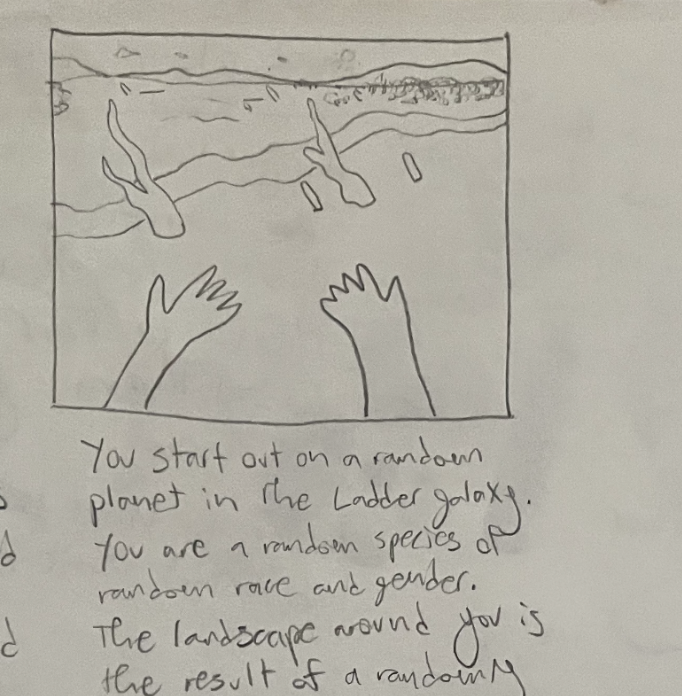 You start out on a random
planet in the Ladder galaxy.
You are a random species of
random race and gender.
The landscape around you is
the result of a randomly